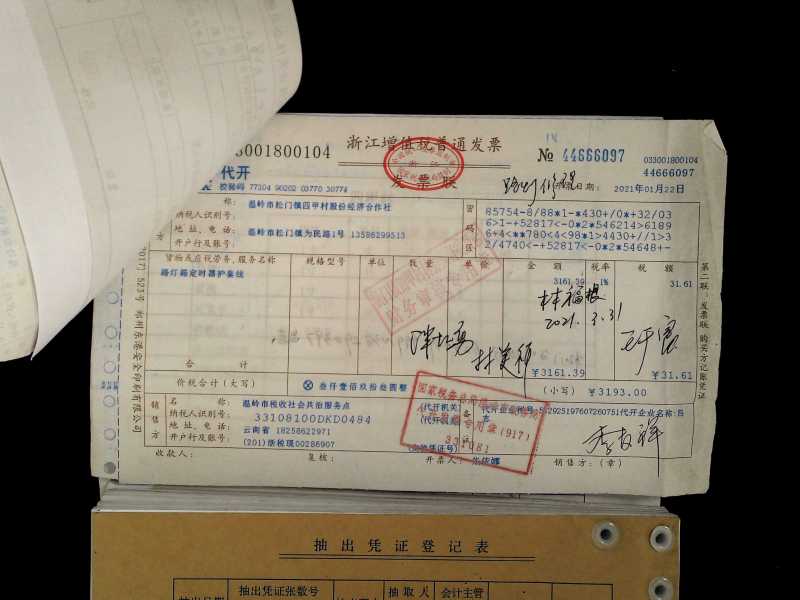 3001800104
浙江增值税普通发票
№ 44666097
033001800104
44666097
代开
校验码 77304 90202 03770 30774
发票联
日期： 2021年01月22日
称： 温岭市松门镇四甲村股份经济合作社
纳税人识别号：
地址、电话： 温岭市松门镇为民路1号 13586299513
开户行及账号：
密码区
85754-8/88*1-*430+/0+*32/03
6>1-+52817<-0*2*546214>6189
6+4<**780<4<98*1>4430+//1>3
2/4740<-+52817<-0*2*54648+-
货物或应税劳务、服务名称 规格型号 单位 数量 单价 金额 税率 税额
路灯箱定时器护套线 3161.39 1% 31.61
林福根
2021.3.31
合计 ￥3161.39 ￥31.61
价税合计（大写） 叁仟壹佰玖拾叁圆整 （小写） ￥3193.00
销售方
称： 温岭市税收社会共治服务点
纳税人识别号： 33108100DKD0484
地址、电话： 云南省 18258622971
开户行及账号： (201)浙税现00286907
备注
(代开机关)
(917)
331081
第二联：发票联 购买方记账凭证
收款人：
复核：
开票人：
销售方：（章）
抽出凭证登记表
抽出日期 抽出凭证张数号 抽取人 会计主管